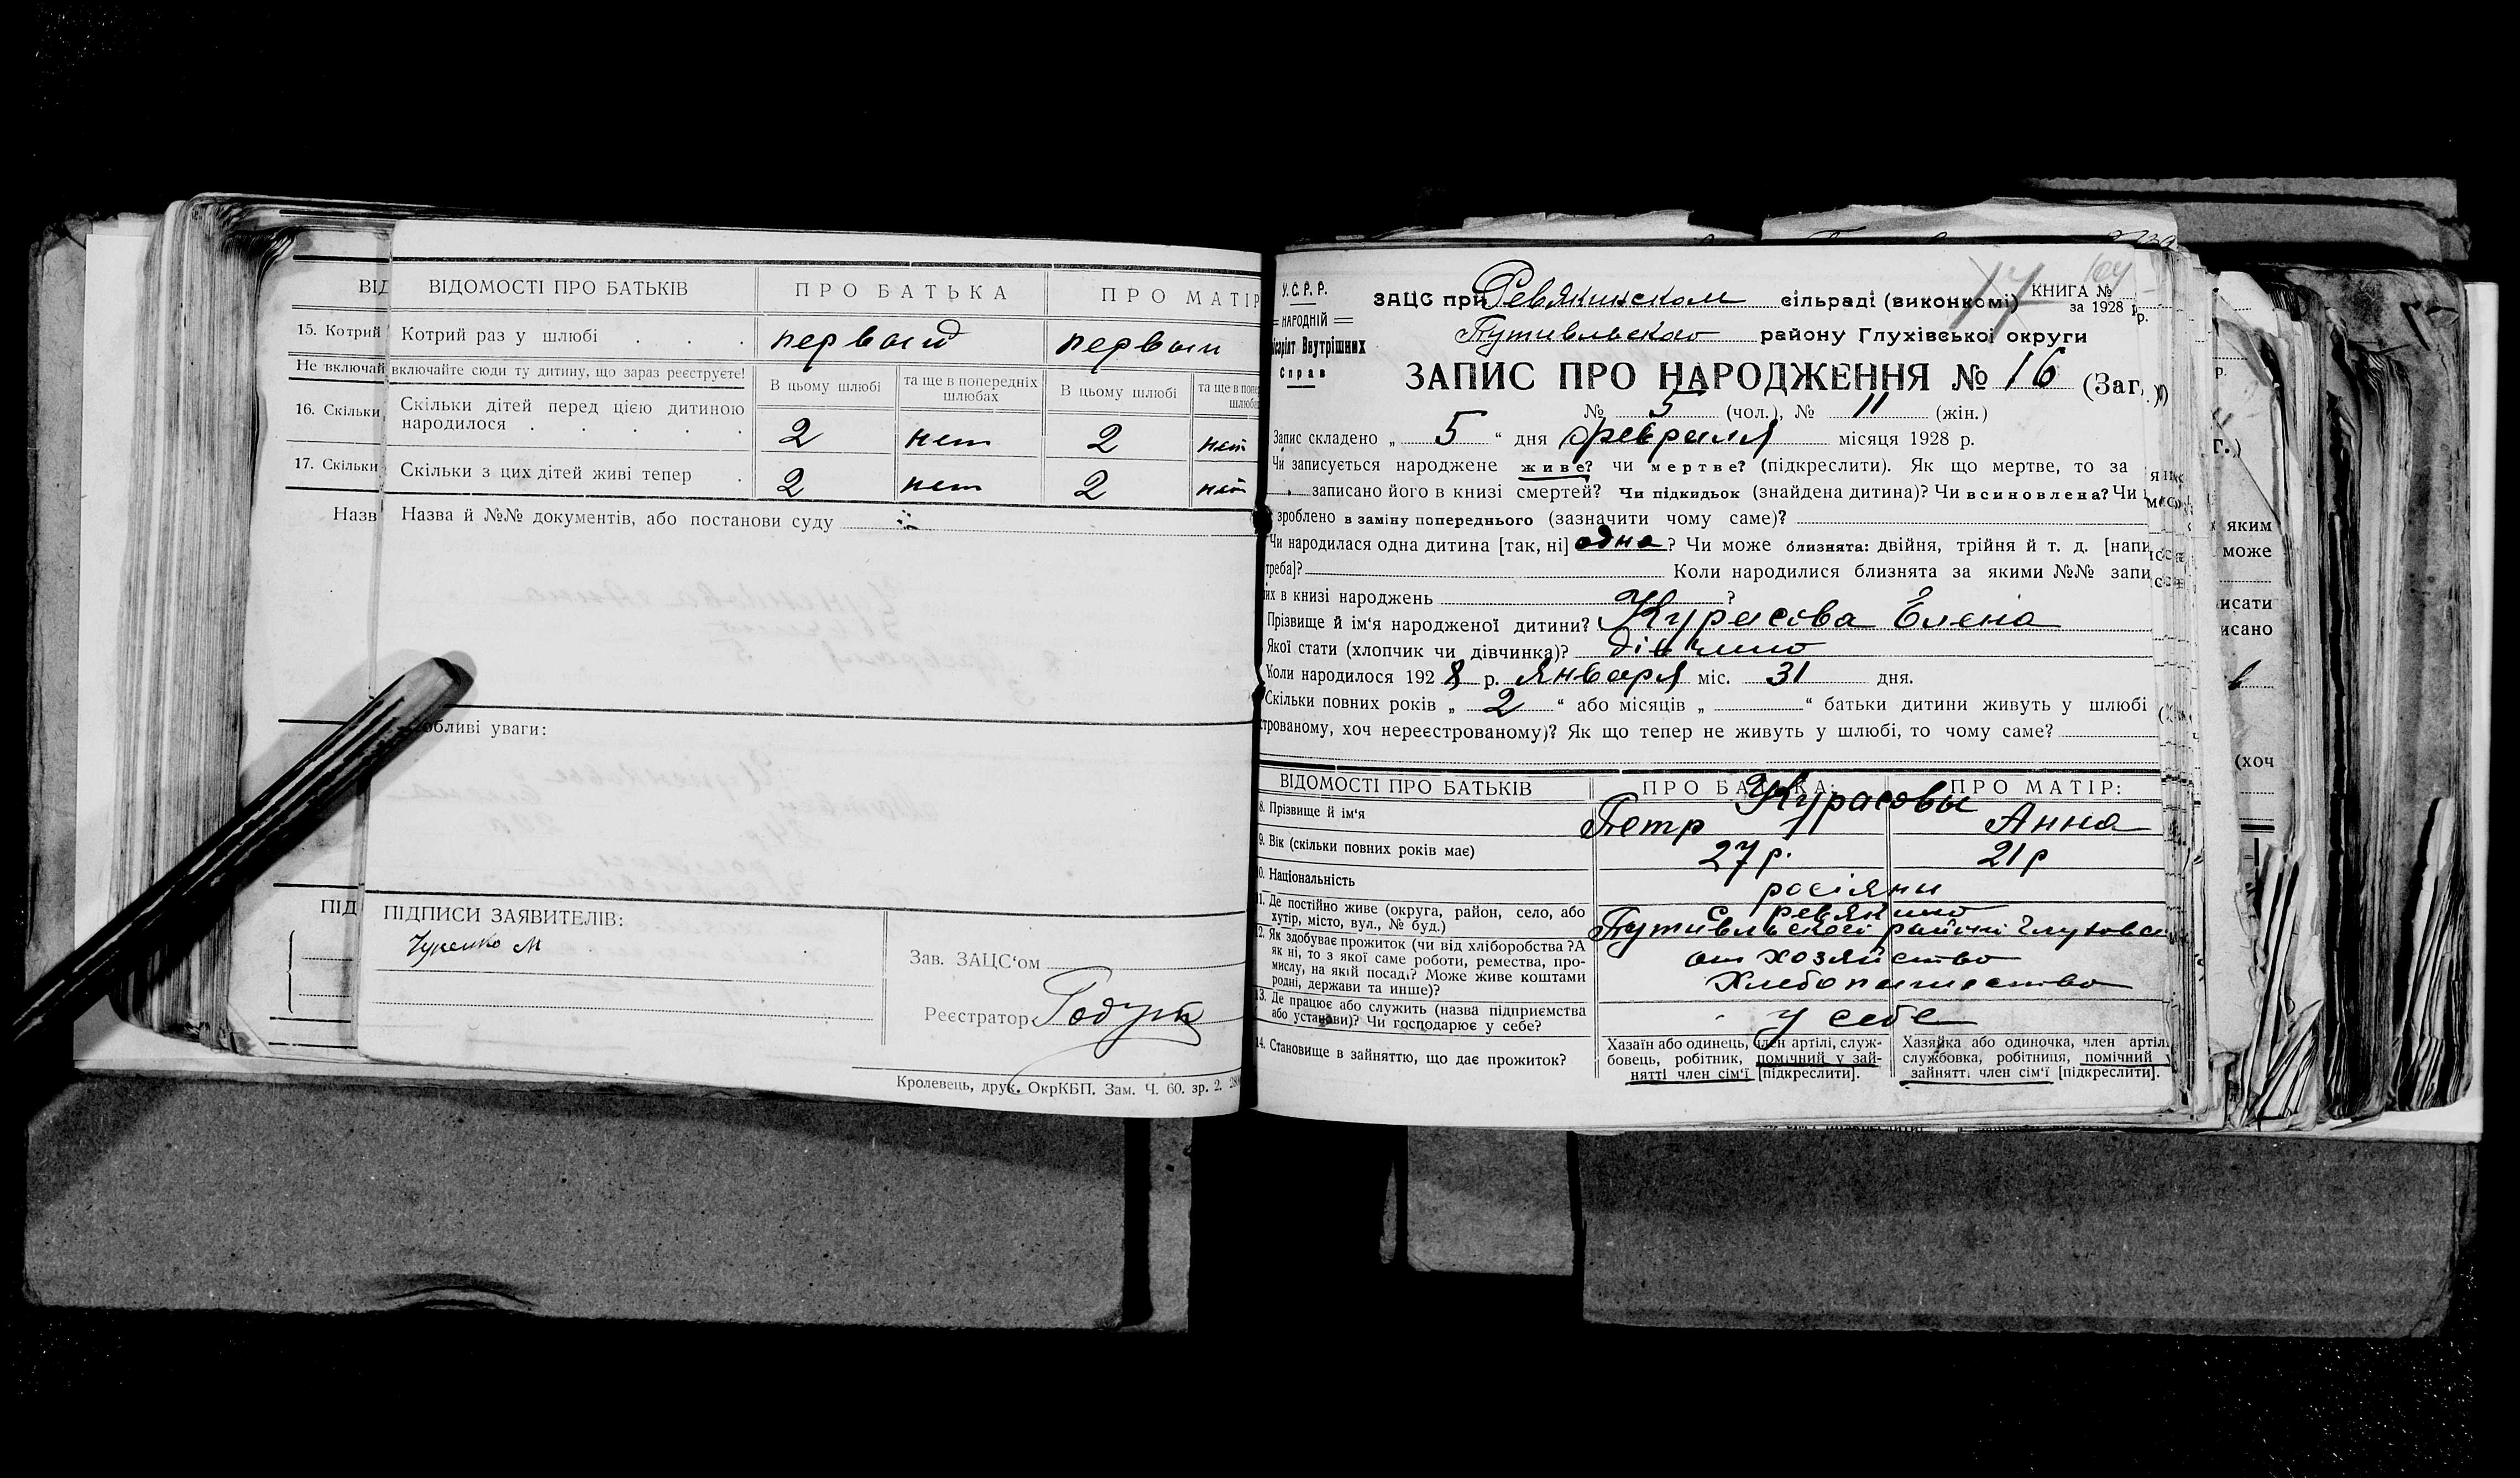 ВІДОМОСТІ ПРО БАТЬКІВ ПРО БАТЬКА ПРО МАТІР
15. Котрий Котрий раз у шлюбі первой первой
Не включай включайте сюди ту дитину, що зараз реєструєте! В цьому шлюбі та ще в попередніх шлюбах В цьому шлюбі
16. Скільки Скільки дітей перед цією дитиною народилося 2 нет 2 нет
17. Скільки Скільки з цих дітей живі тепер 2 нет 2 нет
Назв Назва й №№ документів, або постанови суду
обливі уваги:
ПІД ПІДПИСИ ЗАЯВИТЕЛІВ:
Зав. ЗАЦС‘ом
Реєстратор
Кролевець, друк. ОкрКБП. Зам. Ч. 60. зр. 2.
У.С.Р.Р.
НАРОДНІЙ
Внутрішних
Справ
ЗАЦС при Ревякинском сільраді (виконкомі) КНИГА №
за 1928 р.
Путивльского району Глухівської округи
ЗАПИС ПРО НАРОДЖЕННЯ № 16 (Заг.)
№ 5 (чол.), № 11 (жін.)
Запис складено „ 5 “ дня февраля місяця 1928 р.
Чи записується народжене живе? чи мертве? (підкреслити). Як що мертве, то за
записано його в книзі смертей? Чи підкидьок (знайдена дитина)? Чи всиновлена? Чи
зроблено в заміну попереднього (зазначити чому саме)?
Чи народилася одна дитина [так, ні] одна? Чи може близнята: двійня, трійня й т. д. [напи
треба]? Коли народилися близнята за якими №№ запи
их в книзі народжень ?
Прізвище й ім‘я народженої дитини? Курасова Елена
Якої стати (хлопчик чи дівчинка)? дівчино
Коли народилося 1928 р. Января міс. 31 дня.
Скільки повних років „ 2 “ або місяців „ “ батьки дитини живуть у шлюбі
трованому, хоч нереєстрованому)? Як що тепер не живуть у шлюбі, то чому саме?
ВІДОМОСТІ ПРО БАТЬКІВ ПРО БАТЬКА: ПРО МАТІР:
Курасовы
8. Прізвище й ім‘я Петр Анна
9. Вік (скільки повних років має) 27 р. 21 р
10. Національність росіяни
11. Де постійно живе (округа, район, село, або хутір, місто, вул., № буд.) с. Ревякино
12. Як здобуває прожиток (чи від хліборобства? А як ні, то з якої саме роботи, ремества, промислу, на якій посаді? Може живе коштами родні, держави та инше)? от хозяйство
13. Де працює або служить (назва підприємства або установи)? Чи господарює у себе? у себе
14. Становище в зайняттю, що дає прожиток? Хазяїн або одинець, член артілі, службовець, робітник, помічний у зайнятті член сім‘ї [підкреслити]. Хазяйка або одиночка, член артіл службовка, робітниця, помічний у зайнятті член сім‘ї [підкреслити].
яким
може
исати
исано
(хоч